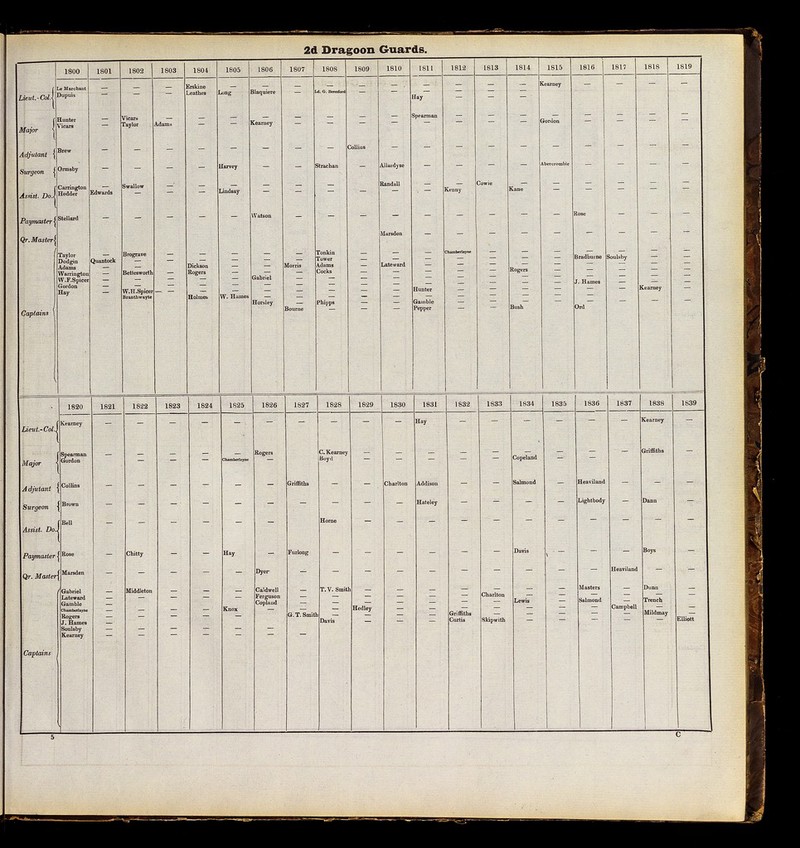 2d Dragoon Guards.
1800 1801 1802 1803 1804 1805 1806 1807 1808 1809 1810 1811 1812 1813 1814 1815 1816 1817 1818 1819
Lieut.-Col. { Le Marchant — — — Erskine — — — — — — — — — — Kearney — — — —
Dupuis — — — Leathes Long Blaquiere — Ld. G. Beresford — — Hay — — —
Major { Hunter — Vicars — — — — — — — — Spearman — — — — — — — —
Vicars — Taylor Adams — — Kearney — — — — — — — — Gordon — — — —
Adjutant { Brew — — — — — — — — Collins — — — — — — — — — —
Surgeon { Ormsby — — — — Harvey — — Strachan — Allardyse — — — — Abercrombie — — — —
Assist. Do. { Carrington — Swallow — — — — — — — Randall — — Cowie — — — — — —
Hodder Edwards — — — Lindsay — — — — — — Kenny — Kane — — — — —
Paymaster { Stellard — — — — — Watson — — — — — — — — — Rose — — —
Qr. Master { Marsden — — — — — — — — —
Captains { Taylor — Brograve — — — — — Tonkin — — — Chamberlayne — — — — — — —
Dodgin Quantock — — — — — — Tower — — — — — — — Bradburne Soulsby — —
Adams — — — Dickson — — Morris Adams — Lateward — — — — — — — — —
Warrington — Bettesworth — Rogers — — — Cocks — — — — — Rogers — — — — —
W.F.Spicer — — — — — Gabriel — — — — — — — — — — — — —
Gordon — — — — — — — — — — — — — — — J. Hames — — —
Hay — W.H.Spicer — — — — — — — — Hunter — — — — — — Kearney —
Branthwayte — Holmes W. Hames — — — — — — — — — — — — — —
Horsley — Phipps — — Gamble — — — — — — — —
Bourne — — — Pepper — — Bush — Ord — — —
1820 1821 1822 1823 1824 1825 1826 1827 1828 1829 1830 1831 1832 1833 1834 1835 1836 1837 1838 1839
Lieut.-Col. { Kearney — — — — — — — — — — Hay — — — — — — Kearney —
Major { Spearman — — — — — Rogers — C. Kearney — — — — — — — — — Griffiths —
Gordon — — — — Chamberlayne — — Boyd — — — — — Copeland — —
Adjutant { Collins — — — — — — Griffiths — — Charlton Addison — — Salmond — Heaviland — — —
Surgeon { Brown — — — — — — — — — — Hateley — — — — Lightbody — Dann —
Assist. Do. { Bell — — — — — — — Horne — — — — — — — — — — —
Paymaster { Rose — Chitty — — Hay — Furlong — — — — — — Davis — — — Boys —
Qr. Master { Marsden — — — — — Dyer — — — — — — — — — — Heaviland — —
Captains { Gabriel — Middleton — — — Caldwell — T. V. Smith — — — — — — — Masters — Dunn —
Lateward — — — — — Ferguson — — — — — — Charlton — — — — — —
Gamble — — — — — Copland — — — — — — — Lewis — Salmond — Trench —
Chamberlayne — — — — Knox — — — Hodley — — — — — — — Campbell — —
Rogers — — — — — — G. T. Smith — — — — Griffiths — — — — — Mildmay —
J. Hames — — — — — — Davis — — — Curtis Skipwith — — — — — Elliott
Soulsby — — — — — —
Kearney — — — — — — —
5 C